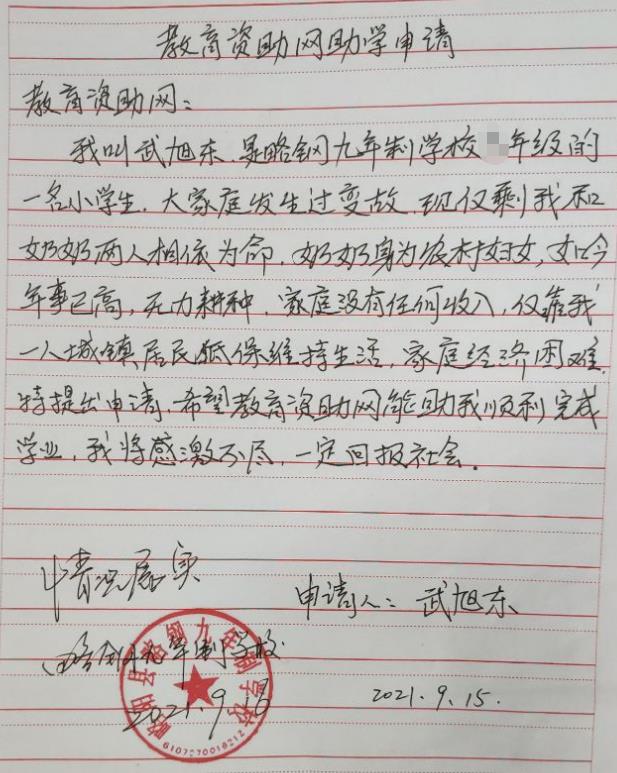 教育资助网助学申请
教育资助网：
我叫武旭东，是略钢九年制学校 年级的
一名小学生，大家庭发生过变故，现仅剩我和
奶奶两人相依为命，奶奶身为农村妇女，如今
年事已高，无力耕种，家庭没有任何收入，仅靠我
一人城镇居民低保维持生活，家庭经济困难，
特提出申请，希望教育资助网能助我顺利完成
学业，我将感激不尽，一定回报社会。
情况属实
申请人：武旭东
略钢九年制学校
2021.9.16
2021.9.15.
略阳县略钢九年制学校
6107270018212